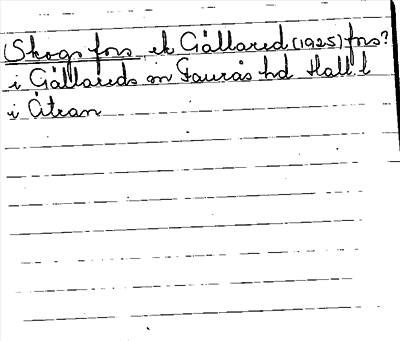 Skogsfors, ek Gällared (1925) fors?
i Gällareds sn Faurås hd Hall l
i Ätran